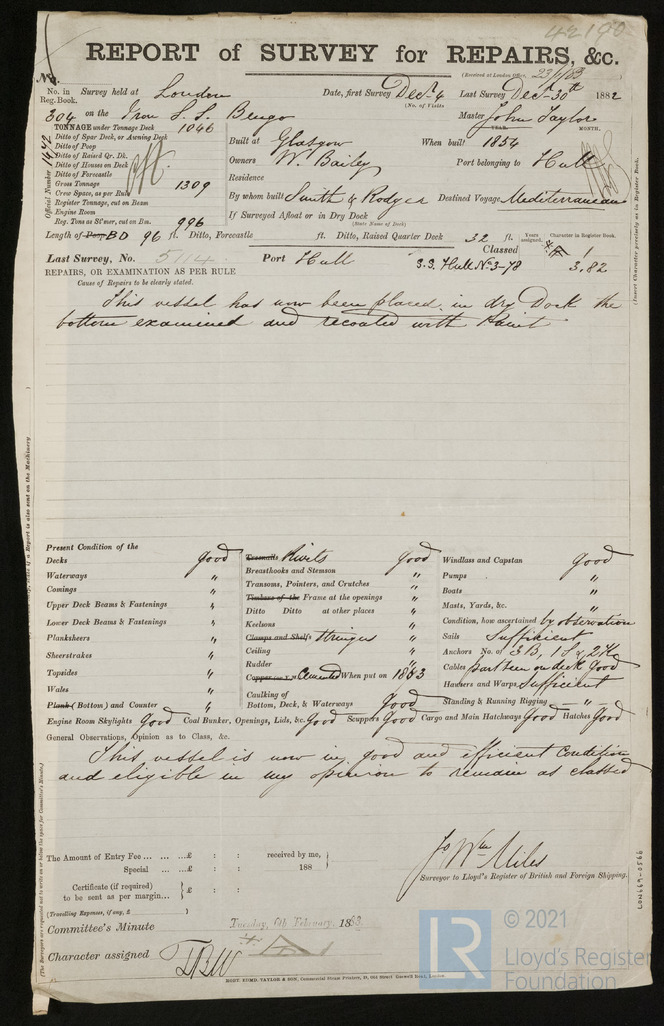 42190
REPORT of SURVEY for REPAIRS, &c.
(Received at London Office, 23/1/83)
No.
No. in Reg. Book. Survey held at London Date, first Survey Decr 4 Last Survey Decr 30th 1882
(No. of Visits
304 on the Iron S.S. Bengo Master John Taylor
TONNAGE under Tonnage Deck 1046
Ditto of Spar Deck, or Awning Deck
Ditto of Poop
Ditto of Raised Qr. Dk.
Ditto of Houses on Deck
Ditto of Forecastle
Gross Tonnage 1309
Crew Space, as per Rule
Register Tonnage, cut on Beam
Engine Room
Reg. Tons as St'mer, cut on Bm. 996
Official Number
YEAR. MONTH.
Built at Glasgow When built 1854
Owners W. Bailey Port belonging to Hull
Residence
By whom built Smith & Rodger Destined Voyage Mediterranean
If Surveyed Afloat or in Dry Dock
(State Name of Dock)
Length of Poop BD 96 ft. Ditto, Forecastle ft. Ditto, Raised Quarter Deck 32 ft. Years assigned. Character in Register Book.
Last Survey, No. 5114 Port Hull Classed
S.S. Hull No. 3-78 3,82
(Insert Character precisely as in Register Book.
REPAIRS, OR EXAMINATION AS PER RULE
Cause of Repairs to be clearly stated.
This vessel has now been placed in dry Dock the
bottom examined and recoated with Paint
Present Condition of the
Decks good
Waterways "
Comings "
Upper Deck Beams & Fastenings "
Lower Deck Beams & Fastenings "
Planksheers "
Sheerstrakes "
Topsides "
Wales "
Plank (Bottom) and Counter "
Treenails Rivets good
Breasthooks and Stemson "
Transoms, Pointers, and Crutches "
Timbers of the Frame at the openings "
Ditto Ditto at other places "
Keelsons "
Clamps and Shelfs Stringers "
Ceiling "
Rudder "
Copper Cemented When put on 1883
Caulking of
Bottom, Deck, & Waterways Good
Windlass and Capstan good
Pumps "
Boats "
Masts, Yards, &c. "
Condition, how ascertained by observation
Sails Sufficient
Anchors No. of 3B, 1S & 2K
Cables part seen on deck good
Hawsers and Warps Sufficient
Standing & Running Rigging "
Engine Room Skylights Good Coal Bunker, Openings, Lids, &c. Good Scuppers Good Cargo and Main Hatchways Good Hatches Good
General Observations, Opinion as to Class, &c.
This vessel is now in good and efficient Condition
and eligible in my opinion to remain as classed
The Amount of Entry Fee ... ... ...£ : : received by me,
Special ... ...£ : : 188
Certificate (if required)
to be sent as per margin... }£ : :
(Travelling Expenses, if any, £ )
Jo Wm Miles
Surveyor to Lloyd's Register of British and Foreign Shipping.
Committee's Minute Tuesday, 6th February, 1883.
Character assigned TBW
(The Surveyors are requested not to write on or below the space for Committee's Minute.)
LON669-0566
© 2021
LR
Lloyd's Register
Foundation